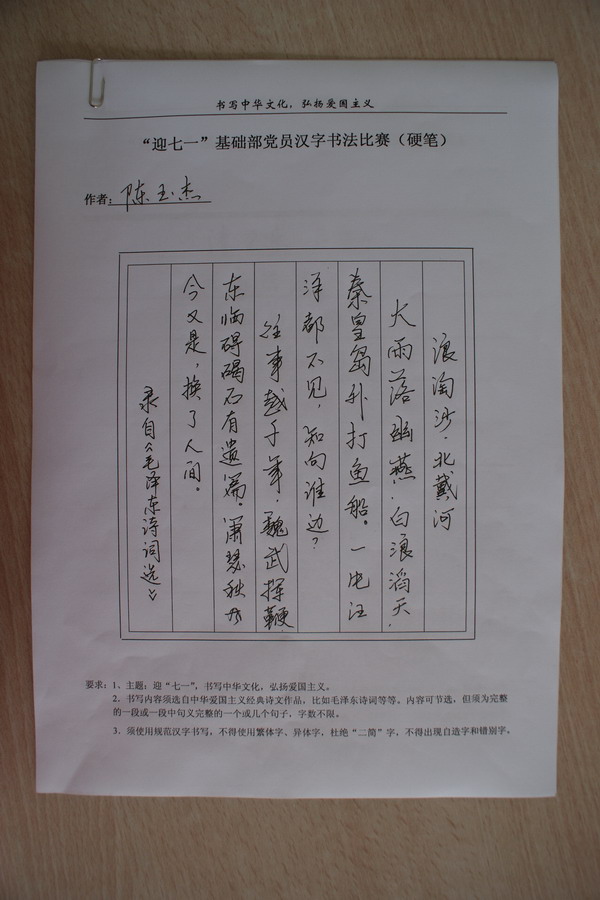 书写中华文化，弘扬爱国主义
“迎七一”基础部党员汉字书法比赛（硬笔）
作者：陈玉杰
浪淘沙·北戴河
大雨落幽燕，白浪滔天，
秦皇岛外打鱼船。一片汪
洋都不见，知向谁边？
往事越千年，魏武挥鞭，
东临碍碣石有遗篇。萧瑟秋风
今又是，换了人间。
录自《毛泽东诗词选》
要求：1、主题：迎“七一”，书写中华文化，弘扬爱国主义。
2．书写内容须选自中华爱国主义经典诗文作品，比如毛泽东诗词等等。内容可节选，但须为完整
的一段或一段中句义完整的一个或几个句子，字数不限。
3．须使用规范汉字书写，不得使用繁体字、异体字，杜绝“二简”字，不得出现自造字和错别字。